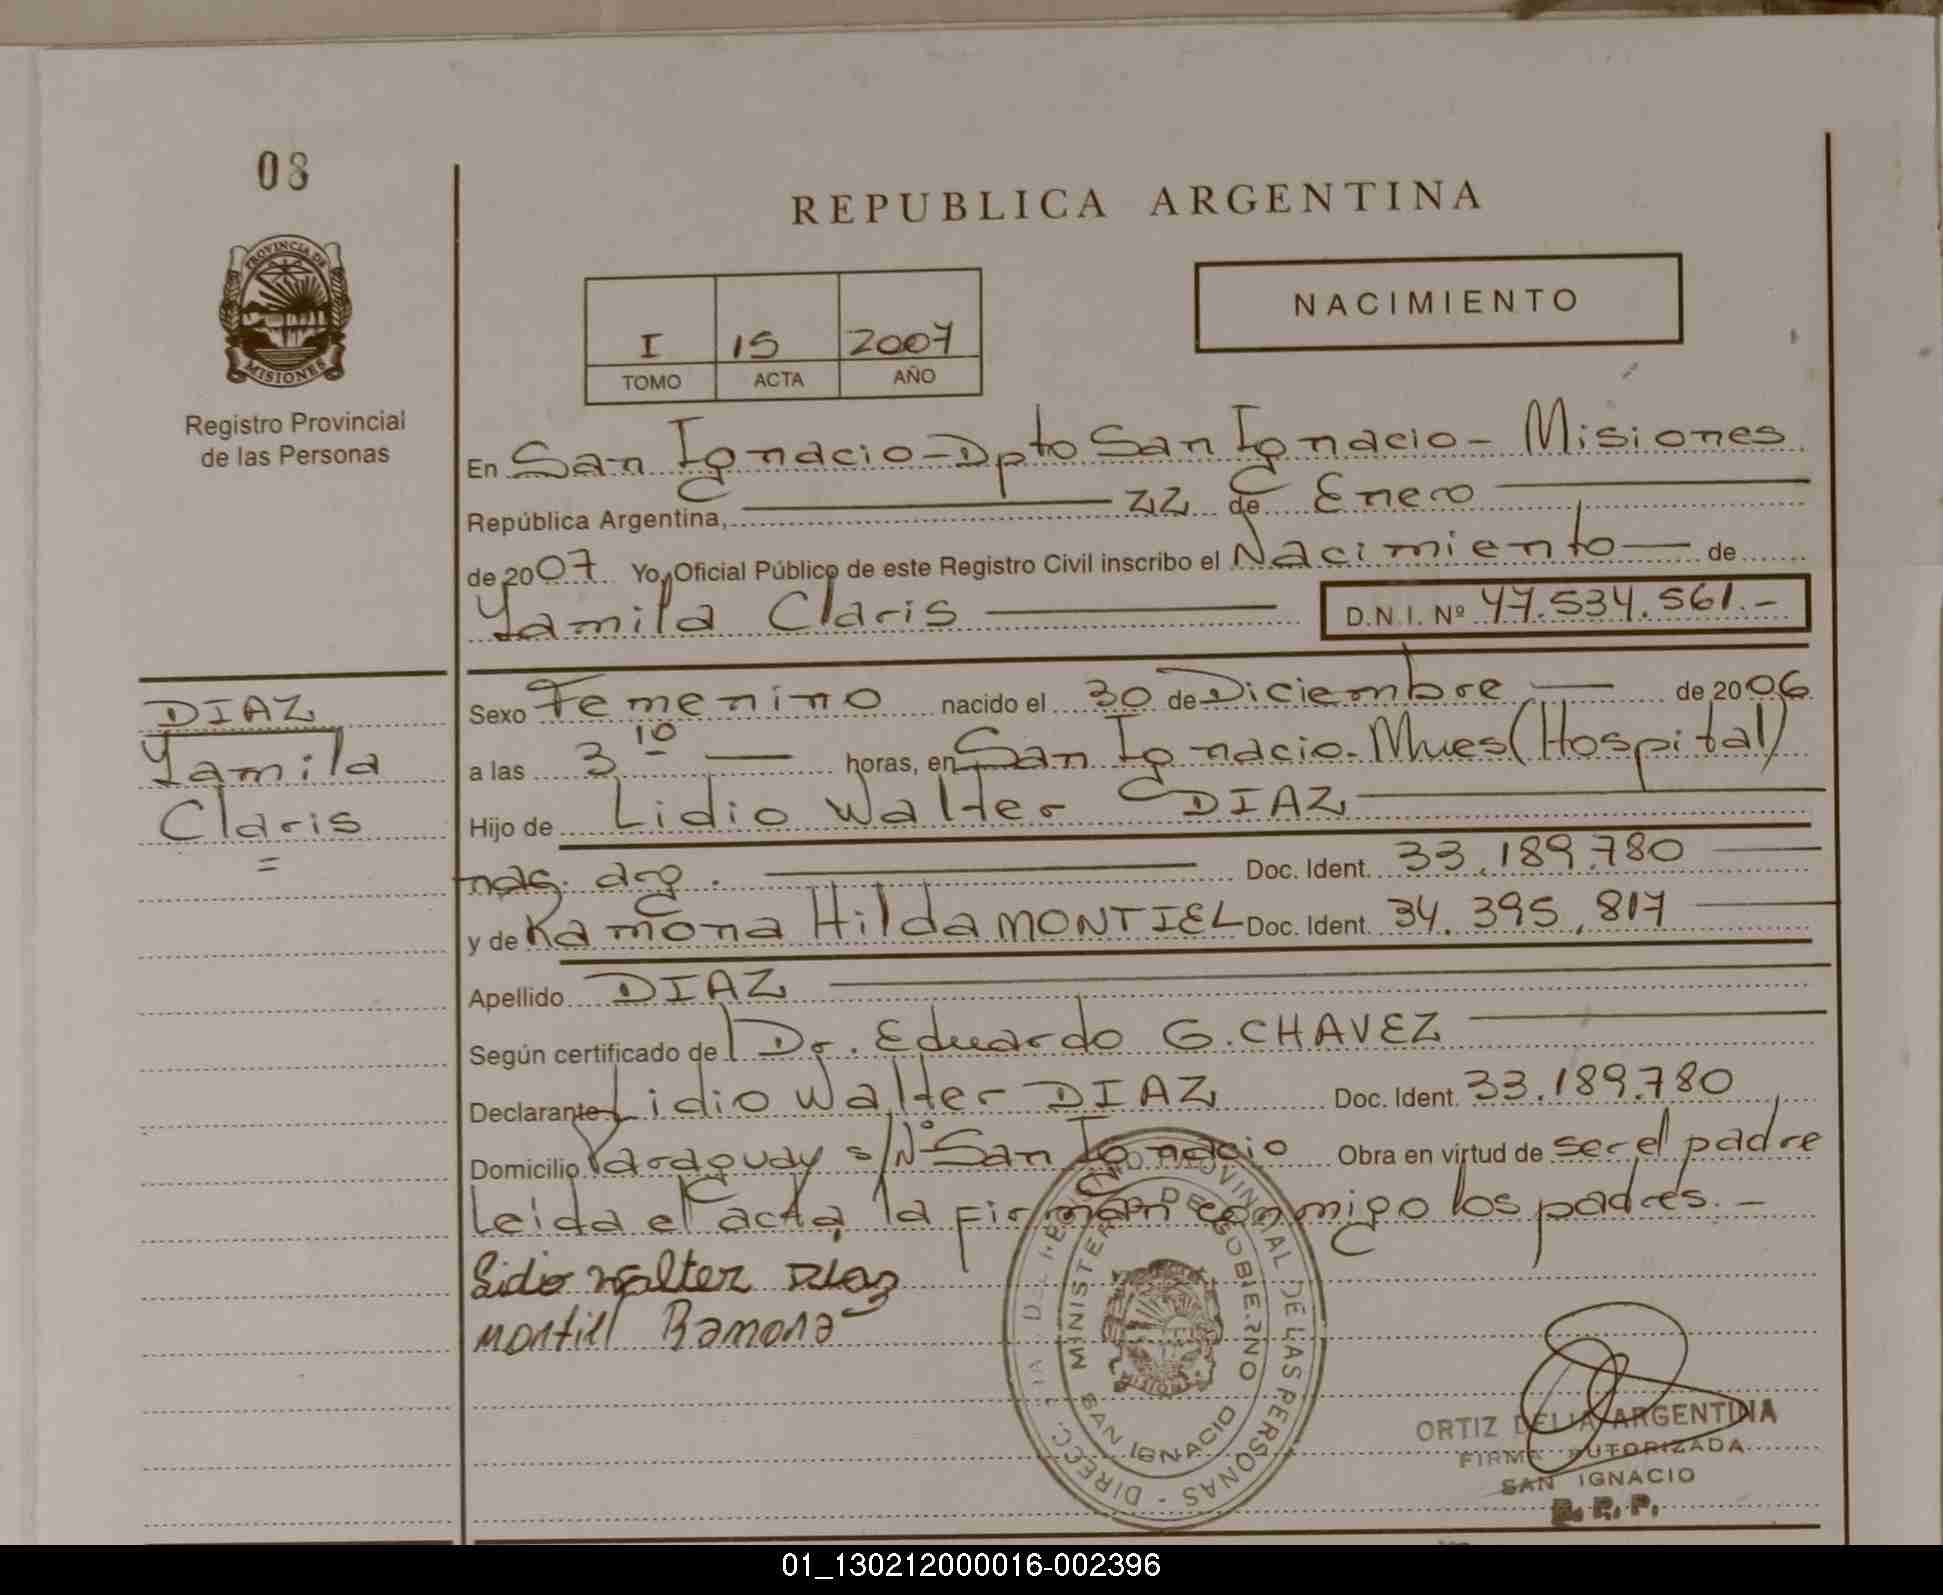 08
REPUBLICA ARGENTINA
PROVINCIA DE
MISIONES
Registro Provincial
de las Personas
I 15 2007
TOMO ACTA AÑO
NACIMIENTO
En San Ignacio - Dpto San Ignacio - Misiones
República Argentina, 22 de Enero
de 2007 Yo, Oficial Público de este Registro Civil inscribo el Nacimiento de
Yamila Claris D.N.I. Nº 47.534.561.-
DIAZ
Yamila
Claris
=
Sexo Femenino nacido el 30 de Diciembre de 2006
a las 3 10 horas, en San Ignacio. Mnes (Hospital)
Hijo de Lidio Walter DIAZ
nac. arg. Doc. Ident. 33.189.780
y de Ramona Hilda MONTIEL Doc. Ident. 34.395.817
Apellido DIAZ
Según certificado del Dr. Eduardo G. CHAVEZ
Declarante Lidio Walter DIAZ Doc. Ident. 33.189.780
Domicilio Paraguay s/Nº San Ignacio Obra en virtud de ser el padre
Leida el acta, la firman conmigo los padres.-
Lidio Walter Diaz
Montiel Ramona
PROVINCIAL DE LAS PERSONAS - DIRECC
MINISTERIO DE GOBIERNO
SAN IGNACIO
ORTIZ DELIA ARGENTINA
FIRMA AUTORIZADA
SAN IGNACIO
R. P. P.
01_130212000016-002396